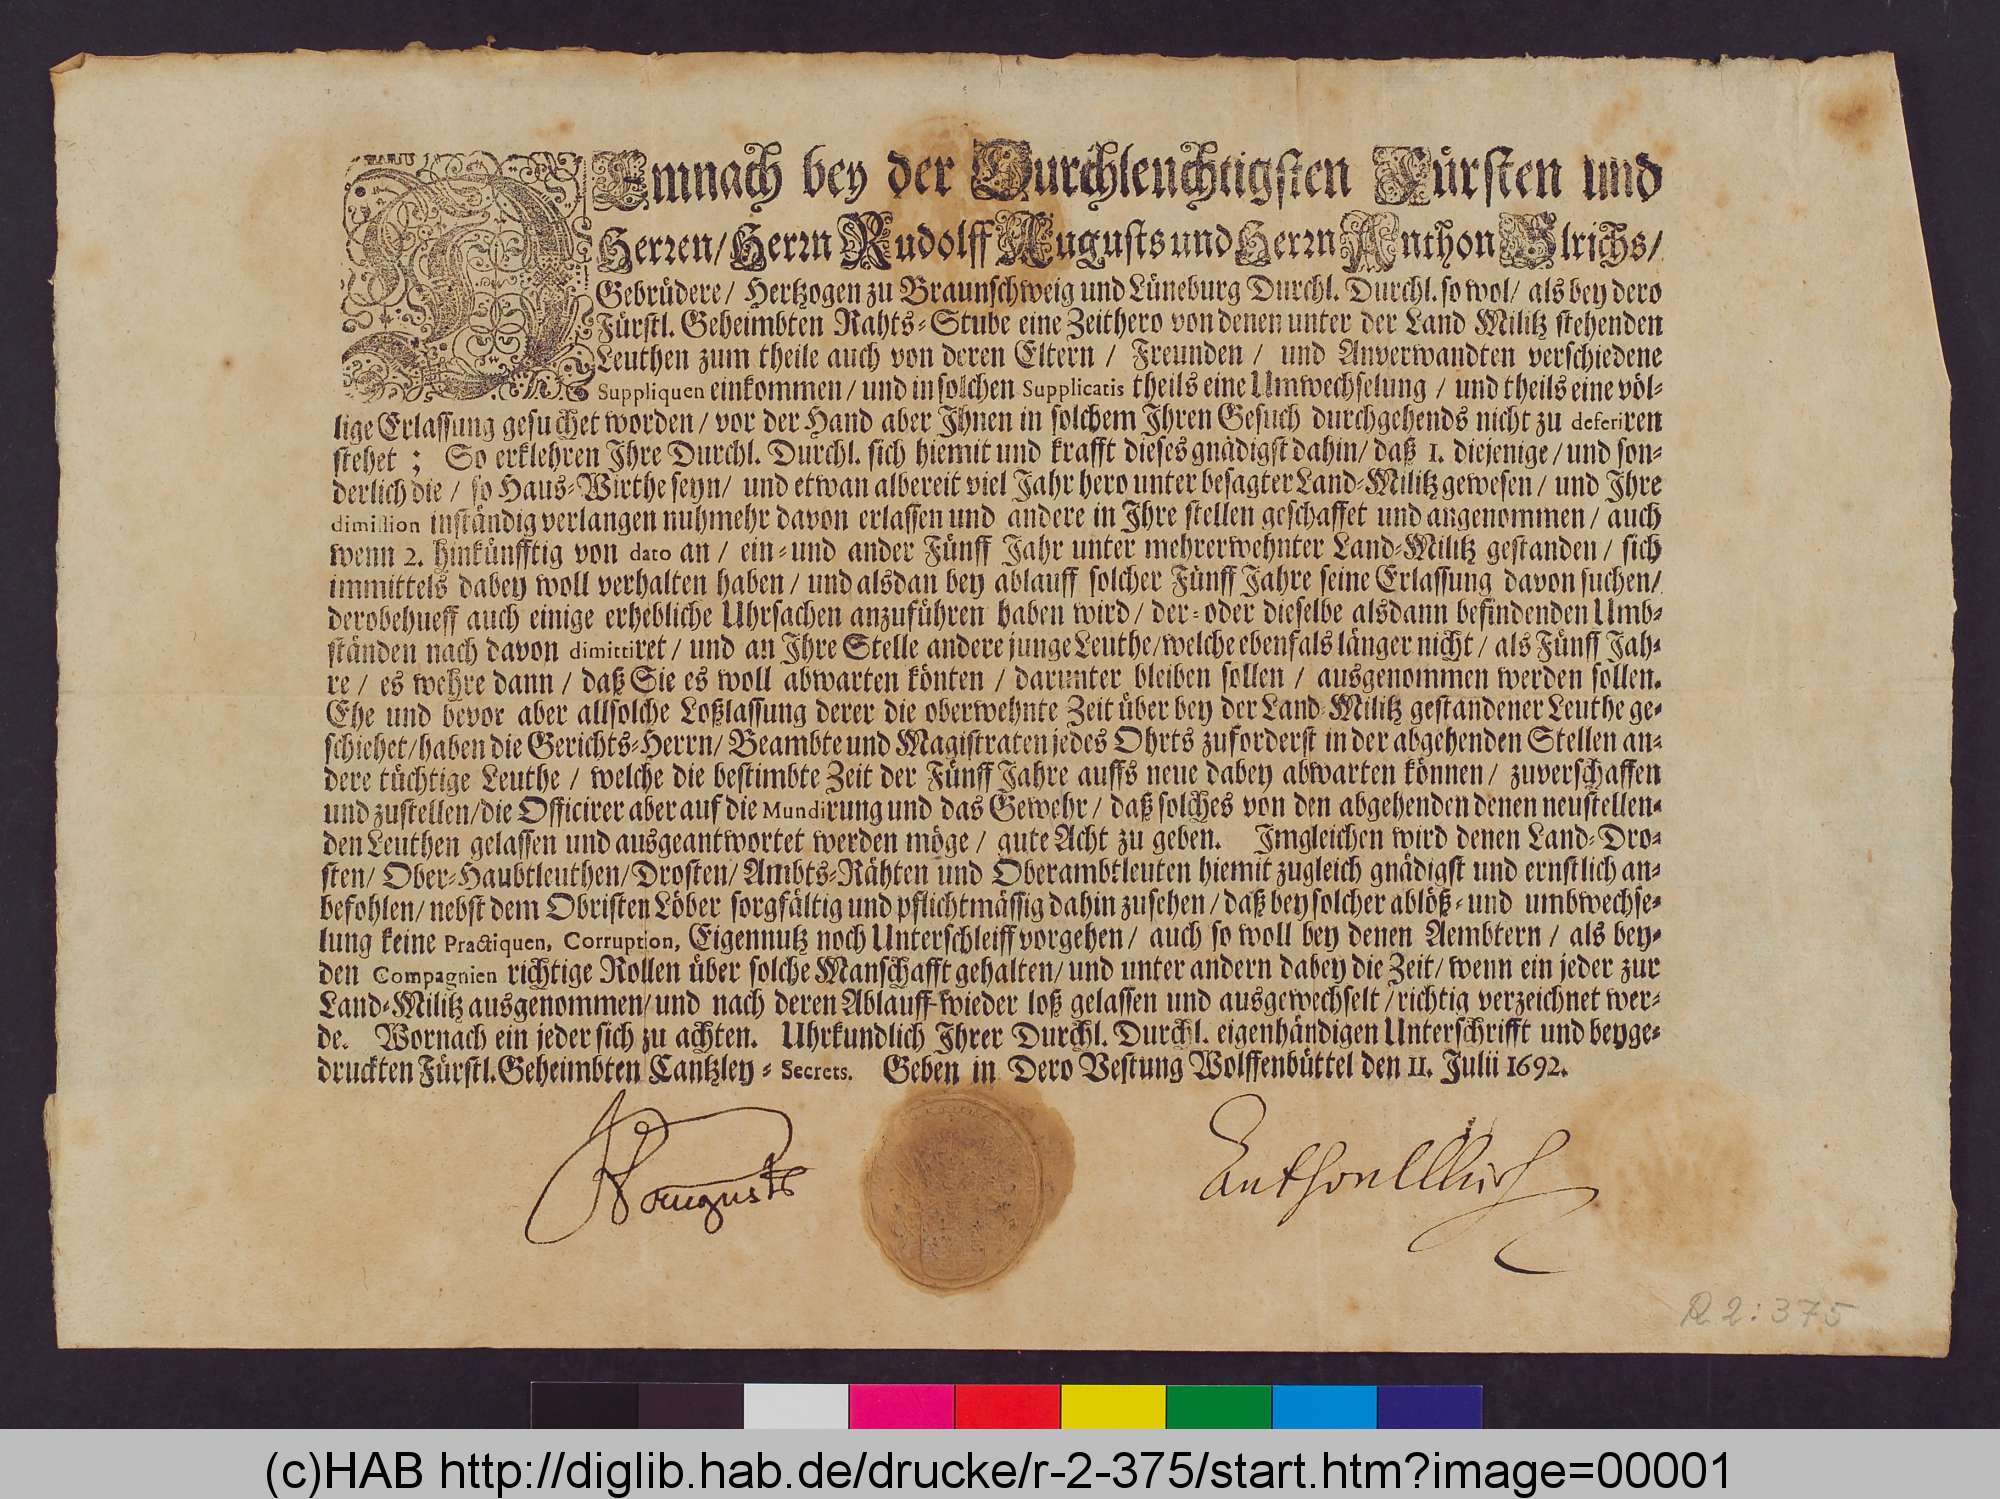 DEmnach bey der Durchleuchtigsten Fürsten und
Herren/ Herrn Rudolff Augusts und Herrn Anthon Ulrichs/
Gebrüdere/ Hertzogen zu Braunschweig und Lüneburg Durchl. Durchl. so wol/ als bey dero
Fürstl. Geheimbten Rahts-Stube eine Zeithero von denen unter der Land Militz stehenden
Leuthen zum theile auch von deren Eltern / Freunden / und Anverwandten verschiedene
Suppliquen einkommen / und in solchen Supplicatis theils eine Umwechselung / und theils eine völ-
lige Erlassung gesuchet worden / vor der Hand aber Ihnen in solchem Ihren Gesuch durchgehends nicht zu deferiren
stehet ; So erklehren Ihre Durchl. Durchl. sich hiemit und krafft dieses gnädigst dahin/ daß 1. diejenige / und son-
derlich die / so Haus-Wirthe seyn/ und etwan albereit viel Jahr hero unter besagter Land-Militz gewesen / und Ihre
dimission inständig verlangen nuhmehr davon erlassen und andere in Ihre stellen geschaffet und angenommen / auch
wenn 2. hinkünfftig von dato an / ein- und ander Fünff Jahr unter mehrerwehnter Land-Militz gestanden / sich
immittels dabey woll verhalten haben / und alsdan bey ablauff solcher Fünff Jahre seine Erlassung davon suchen/
derobehueff auch einige erhebliche Uhrsachen anzuführen haben wird / der- oder dieselbe alsdann befindenden Umb-
ständen nach davon dimittiret / und an Ihre Stelle andere junge Leuthe/welche ebenfals länger nicht / als Fünff Jah-
re / es wehre dann / daß Sie es woll abwarten könten / darunter bleiben sollen / ausgenommen werden sollen.
Ehe und bevor aber allsolche Loßlassung derer die oberwehnte Zeit über bey der Land-Militz gestandener Leuthe ge-
schiehet/haben die Gerichts-Herrn/ Beambte und Magistraten jedes Ohrts zuforderst in der abgehenden Stellen an-
dere tüchtige Leuthe / welche die bestimbte Zeit der Fünff Jahre auffs neue dabey abwarten können / zuverschaffen
und zustellen/die Officirer aber auf die Mundirung und das Gewehr / daß solches von den abgehenden denen neustellen-
den Leuthen gelassen und ausgeantwortet werden möge / gute Acht zu geben. Imgleichen wird denen Land-Dro-
sten/ Ober-Haubtleuthen/Drosten/ Ambts-Rähten und Oberambtleuten hiemit zugleich gnädigst und ernstlich an-
befohlen/ nebst dem Obristen Löber sorgfältig und pflichtmässig dahin zusehen / daß bey solcher ablöß- und umbwechse-
lung keine Practiquen, Corruption, Eigennutz noch Unterschleiff vorgehen / auch so woll bey denen Aembtern / als bey-
den Compagnien richtige Rollen über solche Manschafft gehalten/ und unter andern dabey die Zeit/ wenn ein jeder zur
Land-Militz ausgenommen/ und nach deren Ablauff wieder loß gelassen und ausgewechselt / richtig verzeichnet wer-
de. Wornach ein jeder sich zu achten. Uhrkundlich Ihrer Durchl. Durchl. eigenhändigen Unterschrifft und beyge-
druckten Fürstl. Geheimbten Cantzley - Secrets. Geben in Dero Vestung Wolffenbüttel den 11. Julii 1692.
R Augusts
Anthon Ulrich
R 2:375
(c)HAB http://diglib.hab.de/drucke/r-2-375/start.htm?image=00001